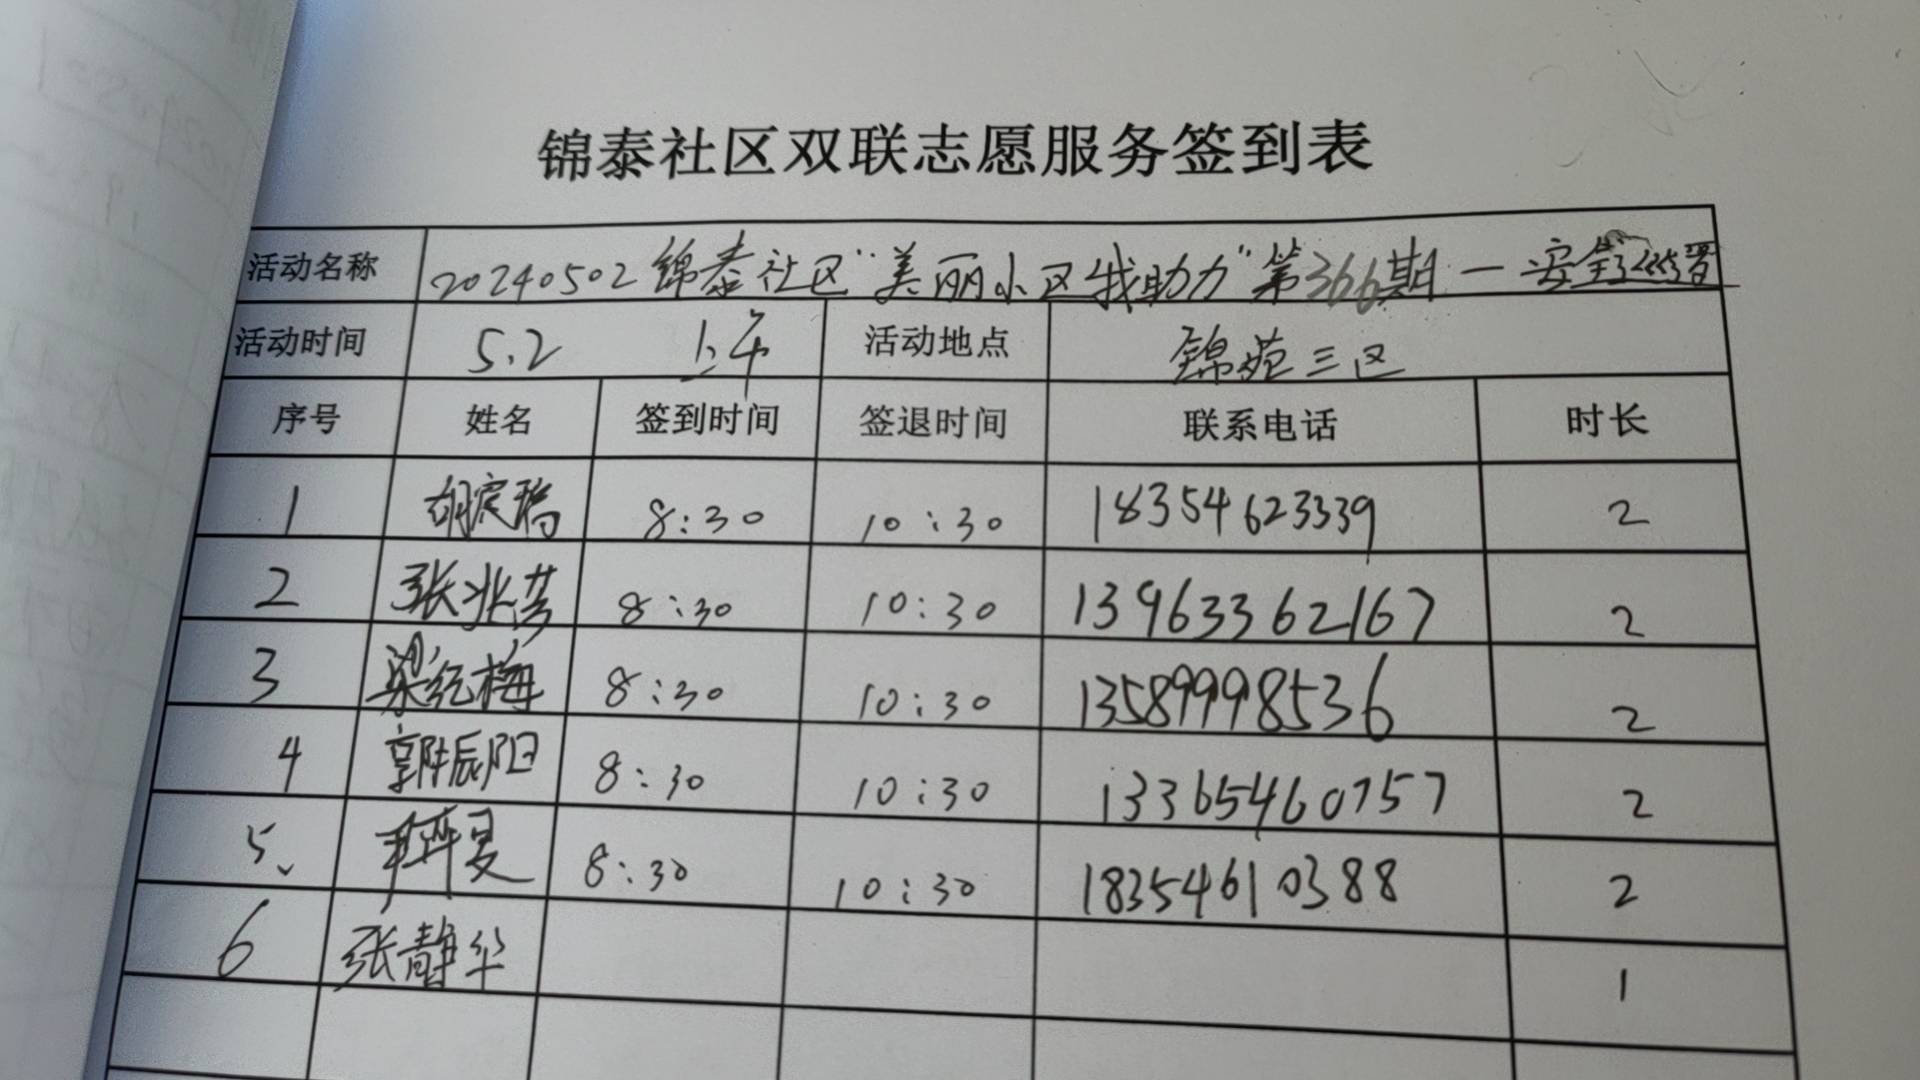 锦泰社区双联志愿服务签到表
活动名称 20240502锦泰社区“美丽小区我助力”第366期一安全
活动时间 5.2 上午 活动地点 锦苑三区
序号 姓名 签到时间 签退时间 联系电话 时长
1 胡宸瑞 8:30 10:30 18354623339 2
2 张兆芳 8:30 10:30 13963362167 2
3 梁红梅 8:30 10:30 13589998536 2
4 郭辰阳 8:30 10:30 13365460757 2
5、 8:30 10:30 18354610388 2
6 张静华 1